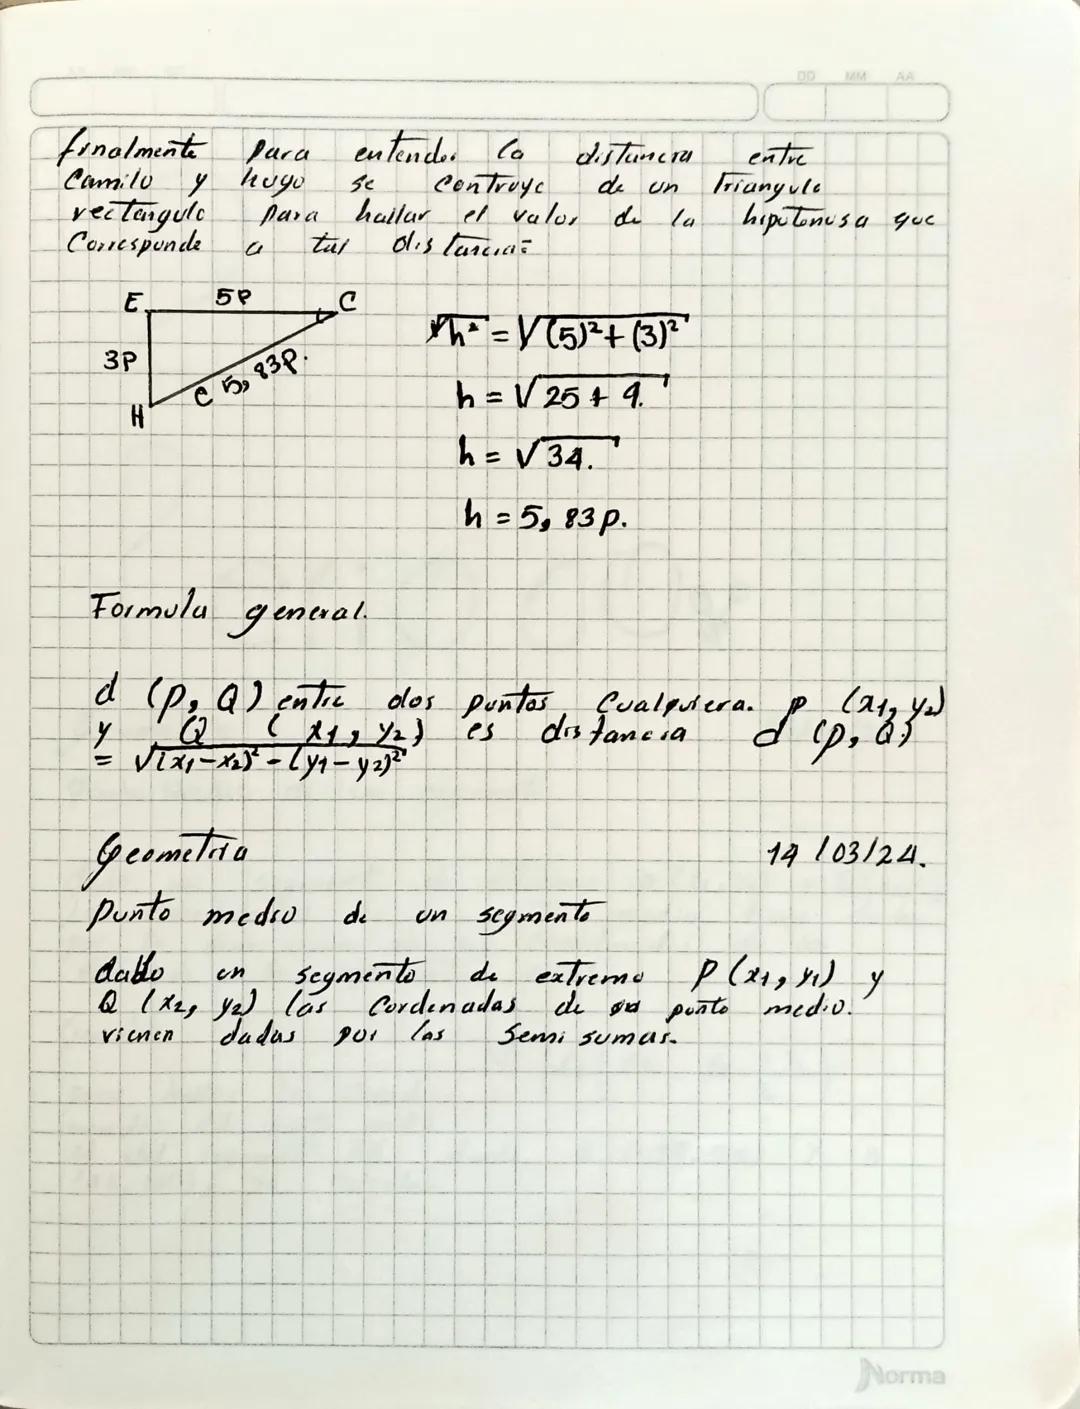 DD MM AA
finalmente para entender la distancia entre
Camilo y hugo se Contruye de un Triangulo
rectangulo para hallar el valor de la hipotenusa que
Corresponde a tal distancia:
E 5P C
3P
C 5,83P.
H
√h² = √(5)²+(3)²
h = √25+9.
h = √34.
h = 5,83p.
Formula general.
d (p, Q) entre dos puntos Cualquiera. p (x1, y2)
y Q (x1, y2) es distancia d (p, Q)
= √(x1-x2)² - (y1-y2)²
Geometria 14/03/24.
Punto medio de un segmento
dado un segmento de extremo P (x1, y1) y
Q (x2, y2) las Cordenadas de su punto medio.
vienen dadas por las Semi sumas.
Norma